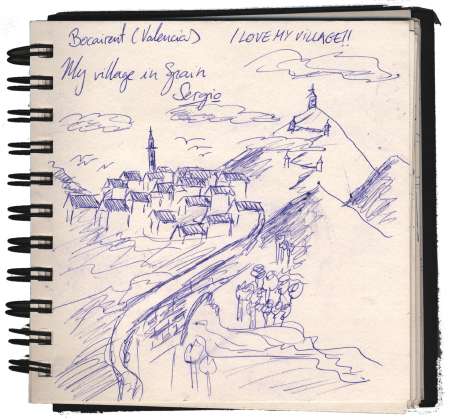 Bocairent (Valencia)
I LOVE MY VILLAGE!!
My village in Spain
Sergio